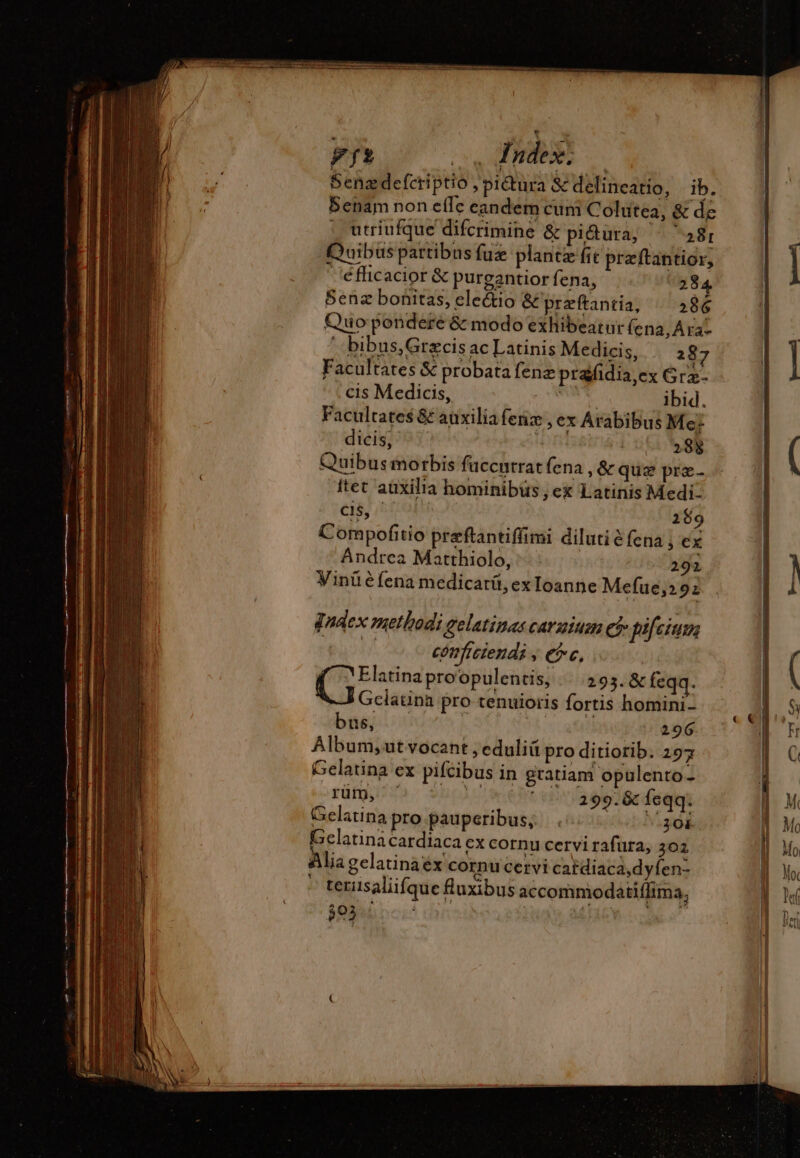 Index.
Senæ descriptio, pictura & delineatio, ib.
Senam non esse eandem cum Colutea, & de
utriusque discrimine & pictura, 281
Quibus partibus suæ plantæ fit præstantior,
efficacior & purgantior sena, 284
Senæ bonitas, electio & præstantia, 286
Quo pondere & modo exhibeatur sena, Ara-
bibus, Græcis ac Latinis Medicis, 287
Facultates & probata senæ præsidia, ex Græ-
cis Medicis, ibid.
Facultates & auxilia senæ, ex Arabibus Me-
dicis, 288
Quibus morbis succurrat sena, & quæ præ-
stet auxilia hominibus, ex Latinis Medi-
cis, 289
Compositio præstantissimi diluti è sena, ex
Andrea Matthiolo, 292
Vinū è sena medicatū, ex Ioanne Mesue, 292
Index methodi gelatinas carnium & piscium
conficiendi, &c,
GElatina pro opulentis, 293. & seqq.
Gelatina pro tenuioris fortis homini-
bus, 296
Album, ut vocant, eduliū pro ditiorib. 297
Gelatina ex piscibus in gratiam opulento-
rum, 299. & seqq.
Gelatina pro pauperibus, 301
Gelatina cardiaca ex cornu cervi rasura, 302
Alia gelatina ex cornu cervi cardiaca, dysen-
teriis aliisque fluxibus accommodatissima,
303